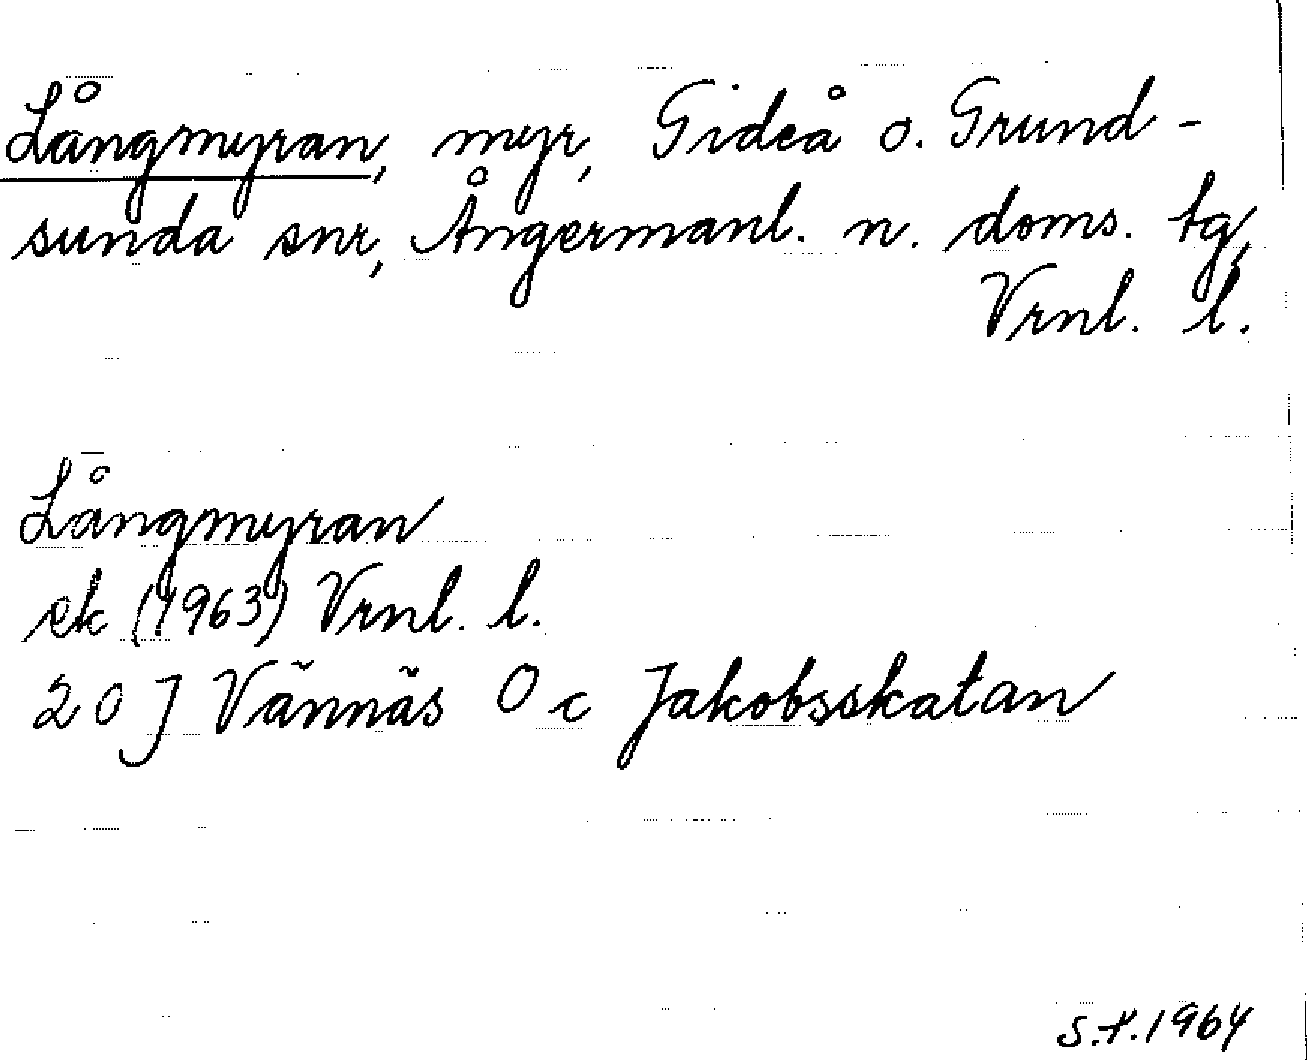 Långmyran, myr, Gideå o. Grund-
sunda snr, Ångermanl. n. doms. tg,
Vrnl. l.
Långmyran
ek (1963) Vrnl. l.
20 J Vännäs O c Jakobsskatan
1964